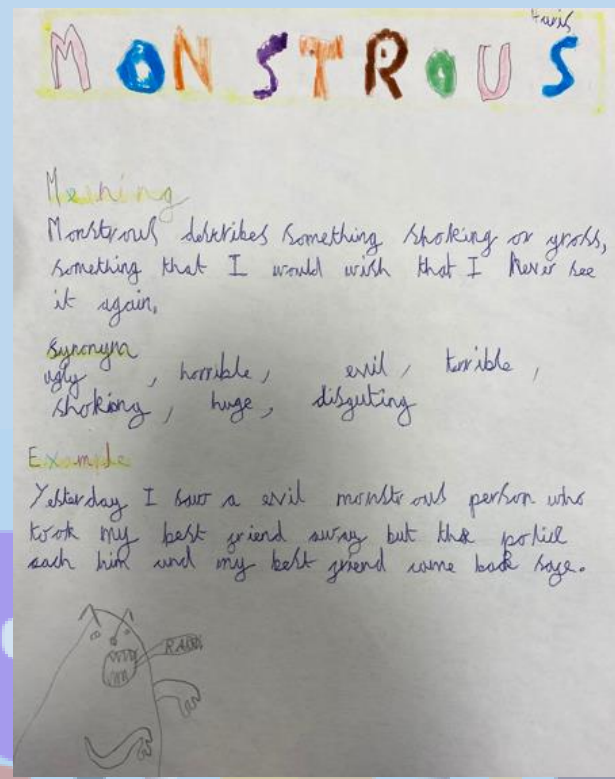 Haris
MONSTROUS
Meaning
Monstrous describes something shoking or gross,
something that I would wish that I never see
it again.
Synonym
ugly , horrible, evil, terrible,
shoking, huge, disguting
Example
Yesterday I saw a evil monstrous person who
took my best friend away but the police
cach him and my best friend came back safe.